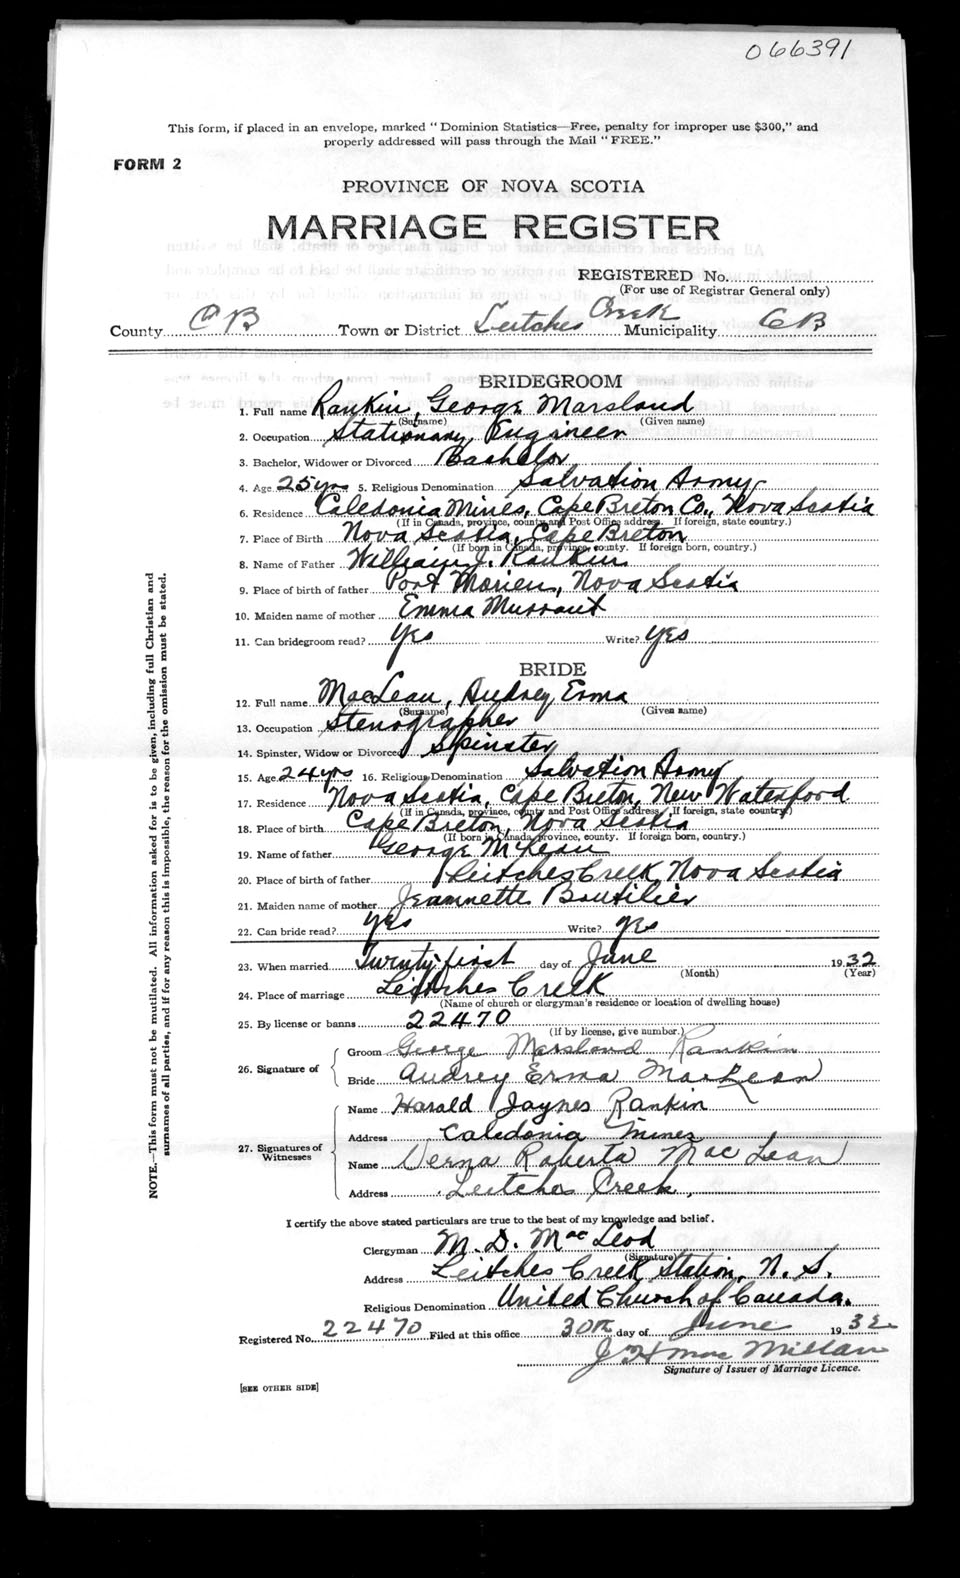 066391
This form, if placed in an envelope, marked "Dominion Statistics—Free, penalty for improper use $300," and
properly addressed will pass through the Mail "FREE."
FORM 2
PROVINCE OF NOVA SCOTIA
MARRIAGE REGISTER
REGISTERED No.
(For use of Registrar General only)
County CB Town or District Leitches Creek Municipality CB
BRIDEGROOM
1. Full name Rankin, George Marsland
(Surname) (Given name)
2. Occupation Stationary Engineer
3. Bachelor, Widower or Divorced Bachelor
4. Age 25 yrs 5. Religious Denomination Salvation Army
6. Residence Caledonia Mines, Cape Breton Co., Nova Scotia
(If in Canada, province, county and Post Office address. If foreign, state country.)
7. Place of Birth Nova Scotia, Cape Breton
(If born in Canada, province, county. If foreign born, country.)
8. Name of Father William J. Rankin
9. Place of birth of father Port Morien, Nova Scotia
10. Maiden name of mother Emma Murrant
11. Can bridegroom read? Yes Write? Yes
BRIDE
12. Full name MacLean, Audrey Erma
(Surname) (Given name)
13. Occupation Stenographer
14. Spinster, Widow or Divorced Spinster
15. Age 24 yrs 16. Religious Denomination Salvation Army
17. Residence Nova Scotia, Cape Breton, New Waterford
(If in Canada, province, county and Post Office address. If foreign, state country.)
18. Place of birth Cape Breton, Nova Scotia
(If born in Canada, province, county. If foreign born, country.)
19. Name of father George McLean
20. Place of birth of father Leitches Creek, Nova Scotia
21. Maiden name of mother Jeannette Boutilier
22. Can bride read? Yes Write? Yes
23. When married Twenty-first day of June 1932
(Month) (Year)
24. Place of marriage Leitches Creek
(Name of church or clergyman's residence or location of dwelling house)
25. By license or banns 22470
(If by license, give number.)
26. Signature of Groom George Marsland Rankin
Bride Audrey Erma MacLean
27. Signatures of Witnesses Name Harald Jaynes Rankin
Address Caledonia Mines
Name Verna Roberta MacLean
Address Leitches Creek,
I certify the above stated particulars are true to the best of my knowledge and belief.
Clergyman M. D. MacLeod
(Signature)
Address Leitches Creek Station, N. S.
Religious Denomination United Church of Canada.
Registered No. 22470 Filed at this office 30th day of June 1932
J H MacMillan
Signature of Issuer of Marriage Licence.
[SEE OTHER SIDE]
NOTE.—This form must not be mutilated. All information asked for is to be given, including full Christian and
surnames of all parties, and if for any reason this is impossible, the reason for the omission must be stated.